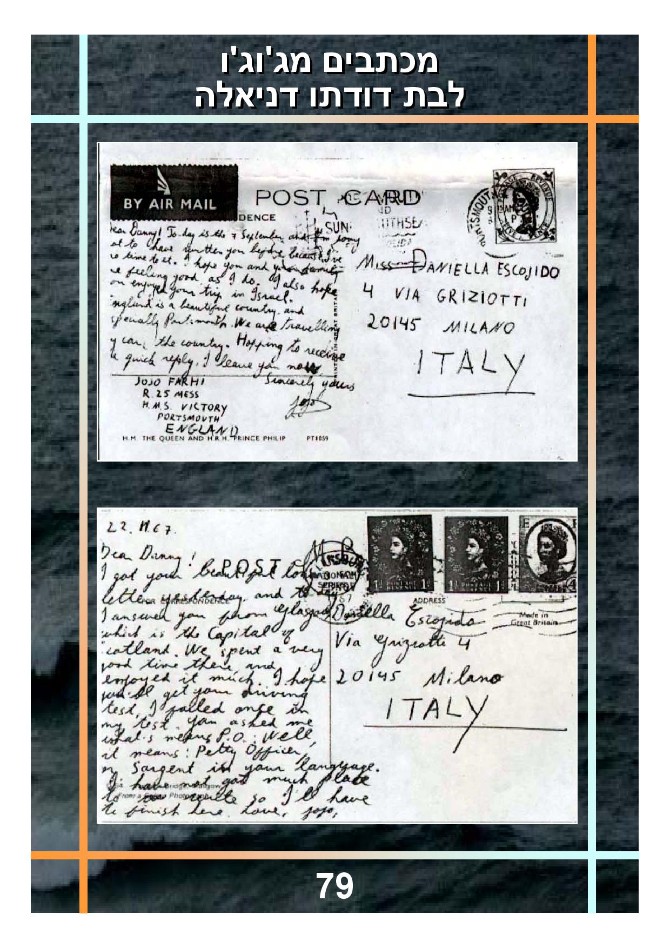 מכתבים מג'וג'ו
לבת דודתו דניאלה
BY AIR MAIL
POST CARD
DENCE
SUN
Dear Danny! To-day is the 7 September and
to have written you before
time to it. I hope you and your family
feeling good as I do. I also hope
enjoyed your trip in Israel.
England is a beautiful country and
specially Portsmouth. We are travelling
the country. Hopping to receive
a quick reply, I leave you now
Sincerely yours
Jojo
JOJO FARHI
R.25 MESS
H.M.S. VICTORY
PORTSMOUTH
ENGLAND
H.M. THE QUEEN AND H.R.H. PRINCE PHILIP PT1059
PORTSMOUTH
Miss DANIELLA ESCOJIDO
4 VIA GRIZIOTTI
20145 MILANO
ITALY
22.
Dear Danny!
POST
I got your
letter yesterday and
FOR CORRESPONDENCE
I answered you phrom Glasgow
which is the Capital of
Scotland. We spent a very
good time there and
enjoyed it much. I hope
get your driving
test, I failed once in
my test. You asked me
what's means P.O. Well,
it means: Petty Officer,
or Sargent in your language.
I have not got much place
to write so I'll have
to finish here Love, Jojo,
ADDRESS
Made in
Great Britain
Daniella Escojido
Via Griziotti 4
20145 Milano
ITALY
79